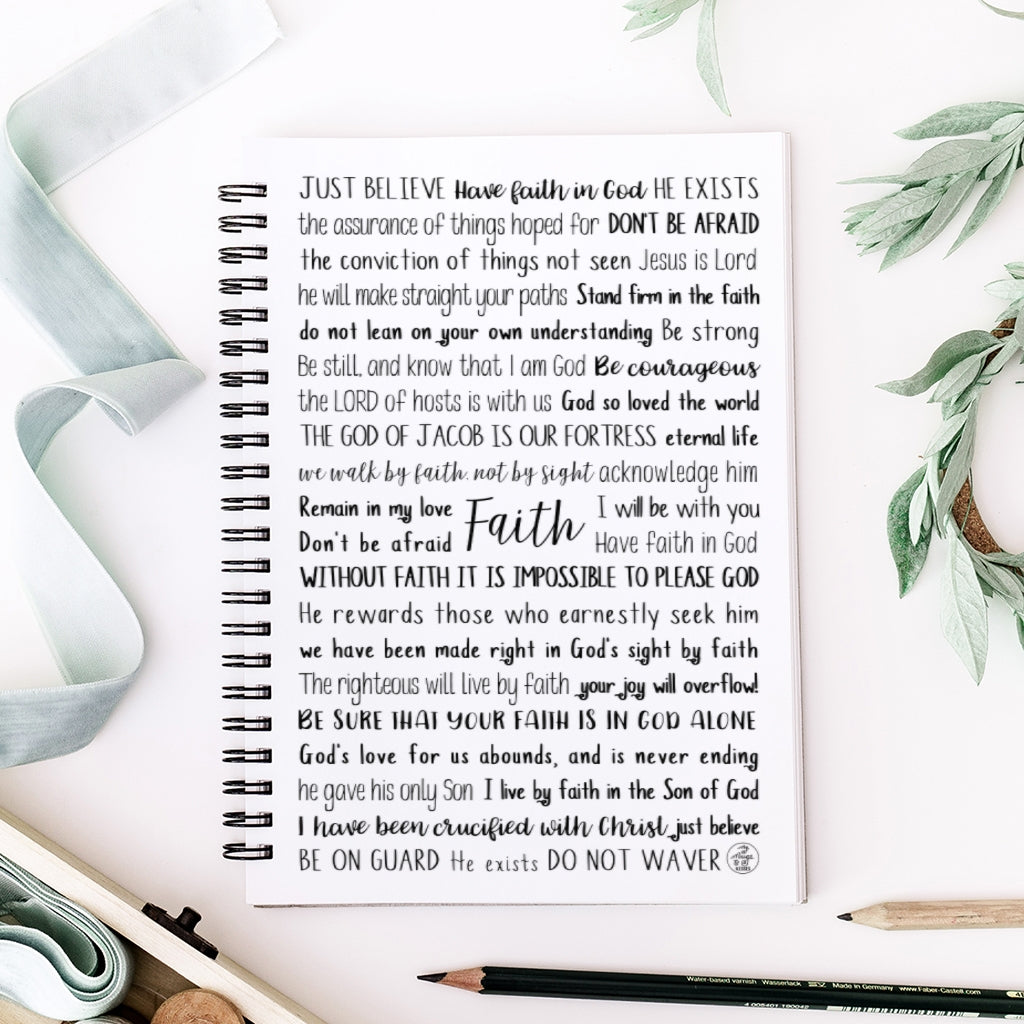 JUST BELIEVE Have faith in God HE EXISTS
the assurance of things hoped for DON'T BE AFRAID
the conviction of things not seen Jesus is Lord
he will make straight your paths Stand firm in the faith
do not lean on your own understanding Be strong
Be still, and know that I am God Be courageous
the LORD of hosts is with us God so loved the world
THE GOD OF JACOB IS OUR FORTRESS eternal life
we walk by faith. not by sight acknowledge him
Remain in my love Faith I will be with you
Don't be afraid Have faith in God
WITHOUT FAITH IT IS IMPOSSIBLE TO PLEASE GOD
He rewards those who earnestly seek him
we have been made right in God's sight by faith
The righteous will live by faith your joy will overflow!
BE SURE THAT YOUR FAITH IS IN GOD ALONE
God's love for us abounds, and is never ending
he gave his only Son I live by faith in the Son of God
I have been crucified with Christ just believe
BE ON GUARD He exists DO NOT WAVER
Water-based varnish Wasserlack Made in Germany www.Faber-Castell.com